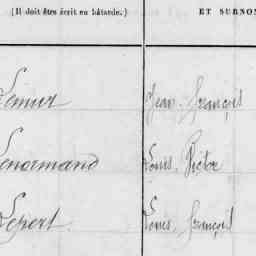 (Il doit être écrit en bâtarde.) ET SURNOM
Lemur Jean François
Lenormand Louis Victor
Lepert Louis François